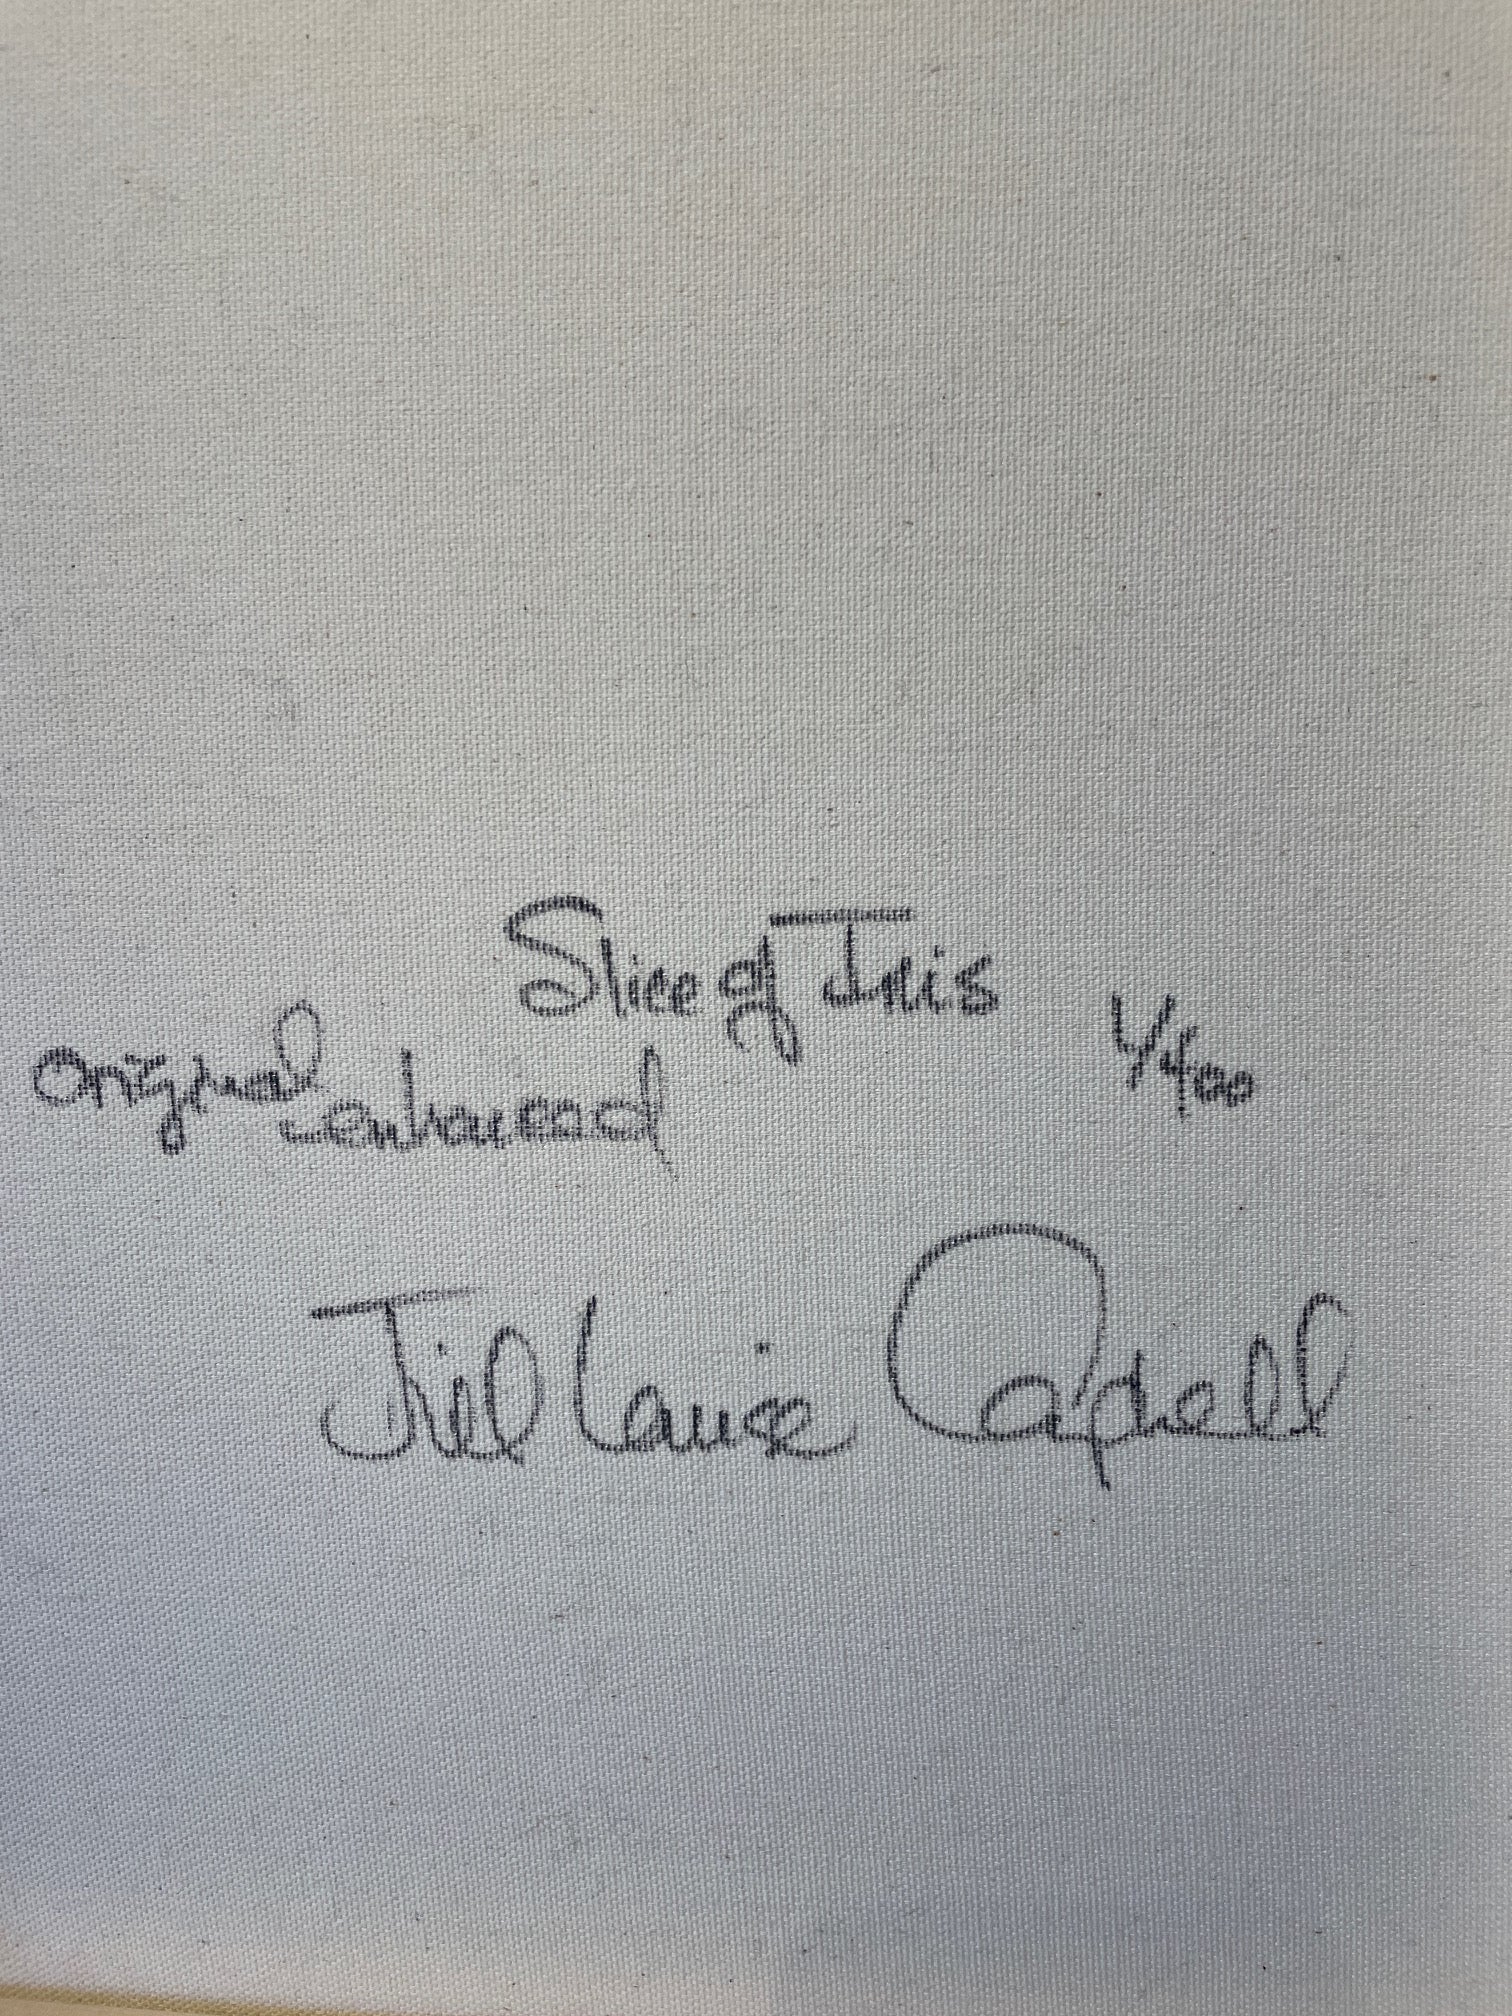 Slice of Iris 1/400
Original enhanced
Jill Louise Capell